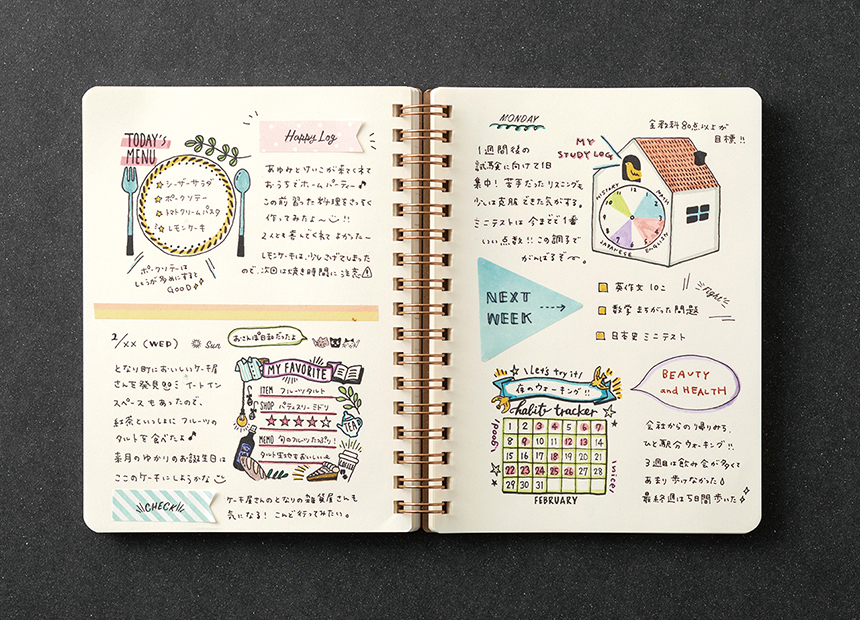 TODAY's
MENU
シーザーサラダ
ポークソテー
トマトクリームパスタ
レモンケーキ
ポークソテーは
しょうが多めにすると
GOOD
Happy Log
あゆみとけいこが来てくれて
おうちでホームパーティー♪
この前習った料理をさっそく
作ってみたよ〜!!
2人とも喜んでくれてよかった〜
レモンケーキは、少しこげてしまった
ので、次回は焼き時間に注意
2/XX (WED)
Sun
おさんぽ日和だったよ
となり町においしいケーキ屋
さんを発見!! イートイン
スペースもあったので、
紅茶といっしょにフルーツの
タルトを食べたよ♪
来月のゆかりのお誕生日は
ここのケーキにしようかな
MY FAVORITE
ITEM フルーツタルト
SHOP パティスリーミドリ
MEMO 旬のフルーツたっぷり!
タルト生地もおいしい
TEA
COFFEE
CHECK!
ケーキ屋さんのとなりの雑貨屋さんも
気になる! こんど行ってみたい。
MONDAY
1週間後の
試験に向けて1日
集中! 苦手だったリスニングも
少しは克服できた気がする。
ミニテストは今までで1番
いい点数!! この調子で
がんばるぞ〜。
MY
STUDY LOG
全教科80点以上が
目標!!
HISTORY
MATH
ENGLISH
JAPANESE
NEXT
WEEK
英作文 10こ
数学 まちがった問題
日本史 ミニテスト
Fight!
Let's try it!
夜のウォーキング!!
habit tracker
good!
nice!
1 2 3 4 5 6 7
8 9 10 11 12 13 14
15 16 17 18 19 20 21
22 23 24 25 26 27 28
29 30 31
FEBRUARY
BEAUTY
and HEALTH
会社からの帰りみち、
ひと駅分ウォーキング!!
3週目は飲み会が多くて
あまり歩けなかった
最終週は5日間歩いた